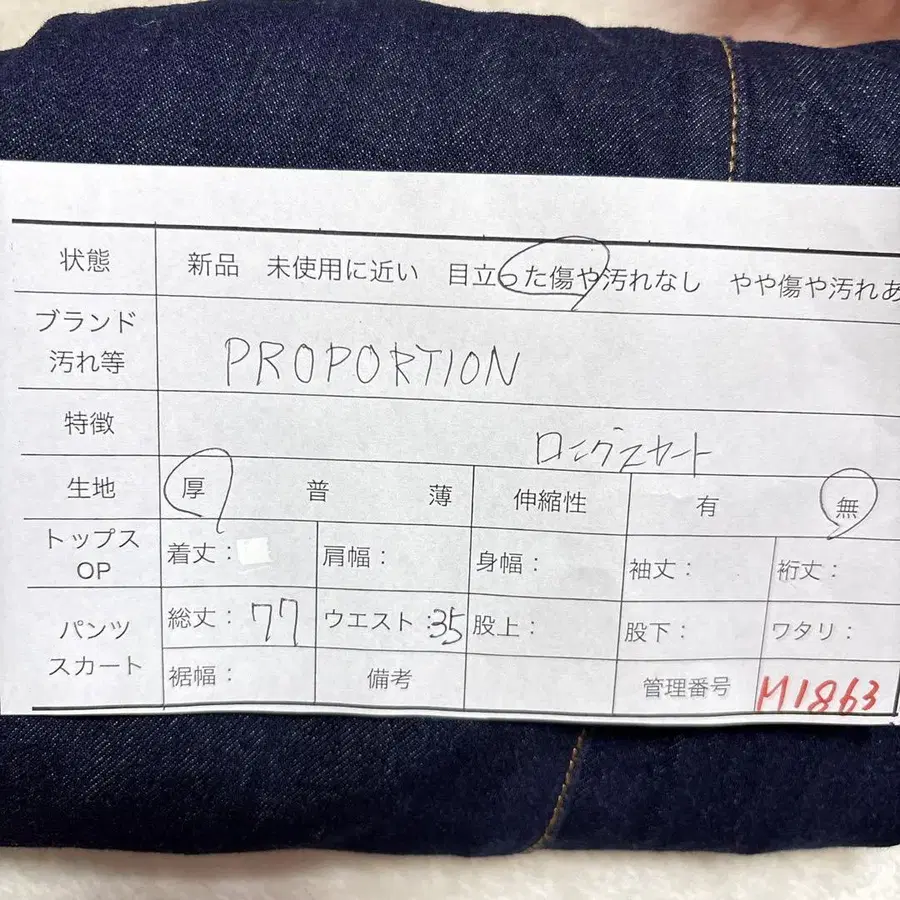 状態 新品 未使用に近い 目立った傷や汚れなし やや傷や汚れあ
ブランド
汚れ等 PROPORTION
特徴 ロングスカート
生地 厚 普 薄 伸縮性 有 無
トップス
OP 着丈: 肩幅: 身幅: 袖丈: 裄丈:
パンツ
スカート 総丈:77 ウエスト:35 股上: 股下: ワタリ:
裾幅: 備考 管理番号 M1863